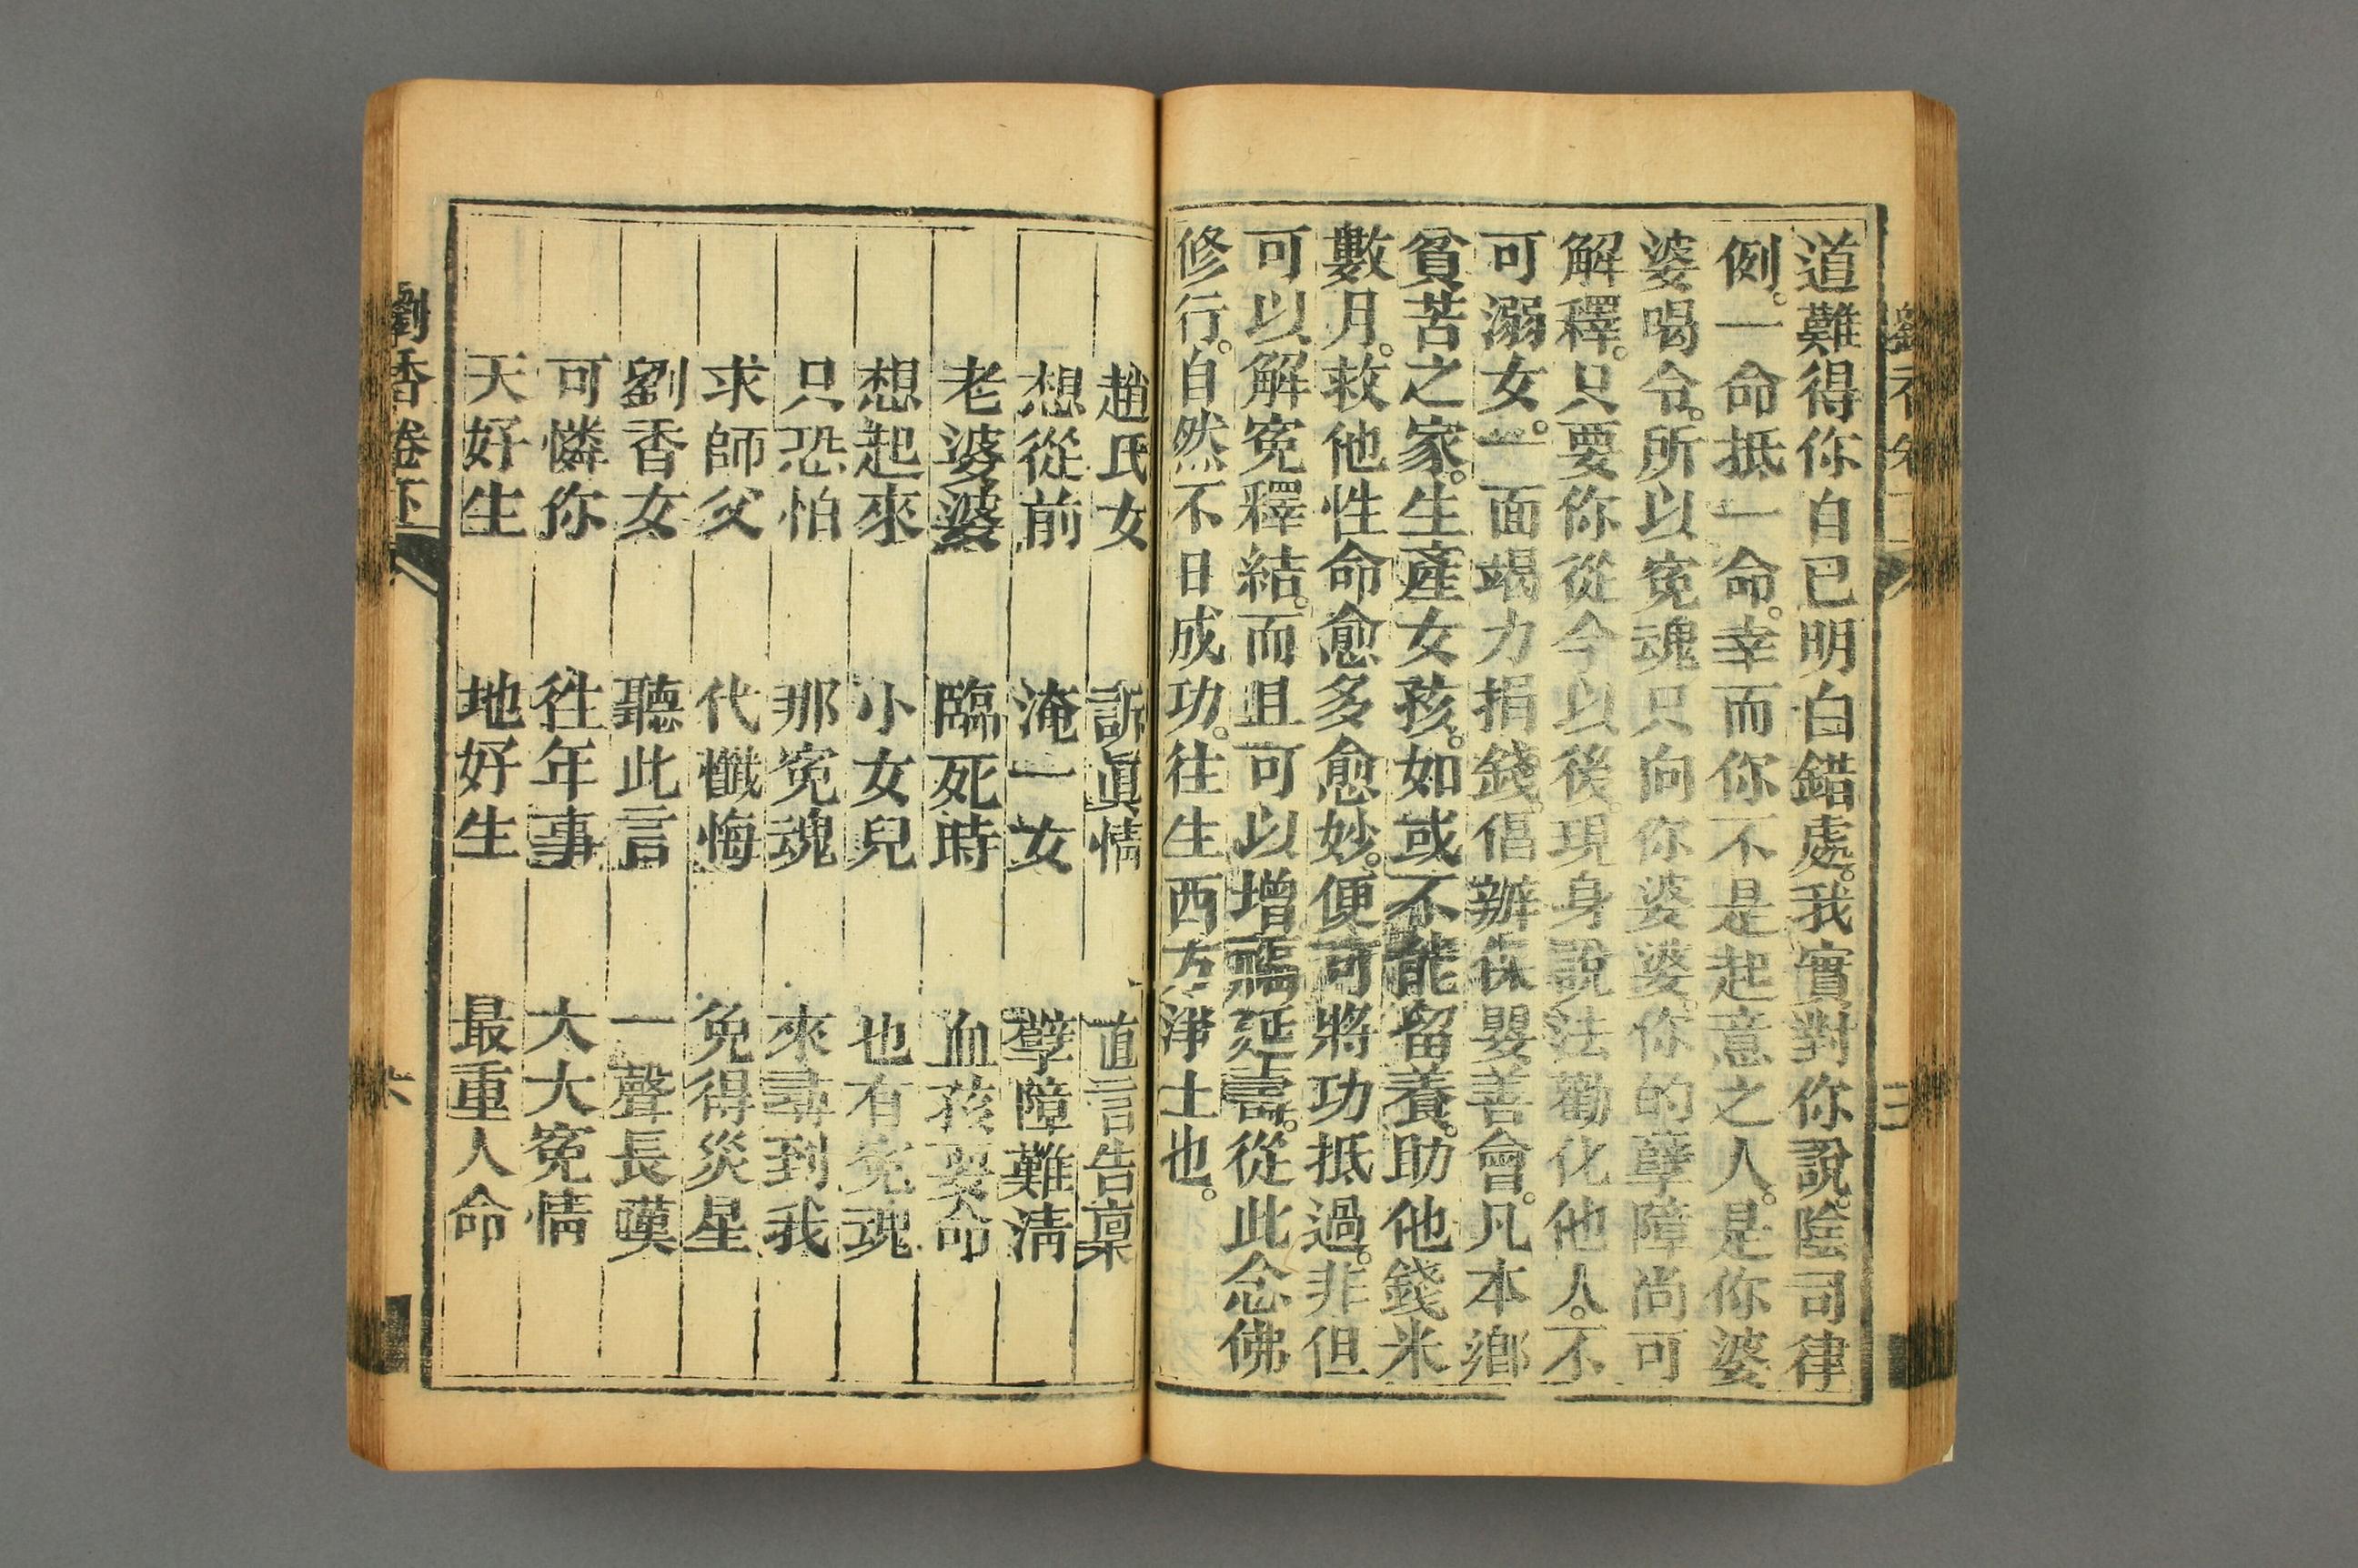 道難得你自已明白錯處。我實對你說。陰司律
例。一命抵一命。幸而你不是起意之人。是你婆
婆喝令。所以寃魂只向你婆婆。你的孽障尚可
解釋。只要你從今以後。現身說法勸化他人。不
可溺女。一面竭力捐錢。倡辦保嬰善會。凡本鄉
貧苦之家。生產女孩。如或不能留養。助他錢米
數月。救他性命愈多愈妙。便可將功抵過。非但
可以解寃釋結。而且可以增福延壽。從此念佛
修行。自然不日成功。往生西方淨土也。
趙氏女 訴眞情 直言告稟
想從前 淹一女 孽障難淸
老婆婆 臨死時 血孩要命
想起來 小女兒 也有寃魂
只恐怕 那寃魂 來尋到我
求師父 代懺悔 免得災星
劉香女 聽此言 一聲長嘆
可憐你 徃年事 大大寃情
天好生 地好生 最重人命
劉香卷下